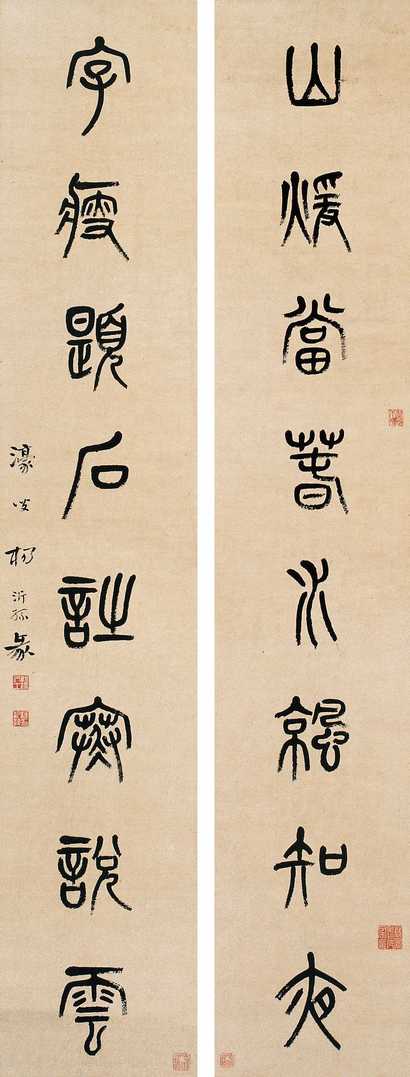 山煖當春水知夜
字瘦題石詩寒說雲
濠叟楊沂孫篆